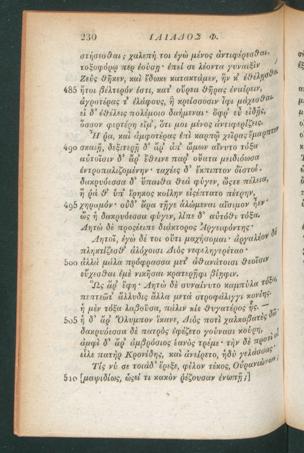 230 ΙΛΙΑΔΟΣ Φ.
στήσεσθαι; χαλεπή τοι ἐγὼ μένος ἀντιφέρεσθαι,
τοξοφόρῳ περ ἐούσῃ· ἐπεί σε λέοντα γυναιξὶν
Ζεὺς θῆκεν, καὶ ἔδωκε κατακτάμεν, ἥν κ' ἐθέλῃσθα.
485 ἤτοι βέλτερόν ἐστι, κατ' οὔρεα θῆρας ἐναίρειν,
ἀγροτέρας τ' ἐλάφους, ἢ κρείσσοσιν ἶφι μάχεσθαι.
εἰ δ' ἐθέλεις πολέμοιο δαήμεναι· ὄφρ' εὖ εἰδῇς,
ὅσσον φερτέρη εἴμ', ὅτι μοι μένος ἀντιφερίζεις.
Ἦ ῥα, καὶ ἀμφοτέρας ἐπὶ καρπῷ χεῖρας ἔμαρπτεν
490 σκαιῇ, δεξιτερῇ δ' ἄρ' ἀπ' ὤμων αἴνυτο τόξα
αὐτοῖσιν δ' ἄρ' ἔθεινε παρ' οὔατα μειδιόωσα
ἐντροπαλιζομένην· ταχέες δ' ἔκπιπτον ὀϊστοί.
δακρυόεσσα δ' ὕπαιθα θεὰ φύγεν, ὥςτε πέλεια,
ἥ ῥά θ' ὑπ' ἴρηκος κοίλην εἰςέπτατο πέτρην,
495 χηραμόν· οὐδ' ἄρα τῇγε ἁλώμεναι αἴσιμον ἦεν·
ὣς ἡ δακρυόεσσα φύγεν, λίπε δ' αὐτόθι τόξα.
Λητὼ δὲ προςέειπε διάκτορος Ἀργειφόντης·
Λητοῖ, ἐγὼ δέ τοι οὔτι μαχήσομαι· ἀργαλέον δὲ
πληκτίζεσθ' ἀλόχοισι Διὸς νεφεληγερέταο·
500 ἀλλὰ μάλα πρόφρασσα μετ' ἀθανάτοισι θεοῖσιν
εὔχεσθαι ἐμὲ νικῆσαι κρατερῆφι βίηφιν.
Ὣς ἄρ' ἔφη· Λητὼ δὲ συναίνυτο καμπύλα τόξα
πεπτεῶτ' ἄλλυδις ἄλλα μετὰ στροφάλιγγι κονίης.
ἡ μὲν τόξα λαβοῦσα, πάλιν κίε θυγατέρος ἧς·
505 ἡ δ' ἄρ' Ὄλυμπον ἵκανε, Διὸς ποτὶ χαλκοβατὲς δῶ·
δακρυόεσσα δὲ πατρὸς ἐφέζετο γούνασι κούρη,
ἀμφὶ δ' ἄρ' ἀμβρόσιος ἑανὸς τρέμε· τὴν δὲ προτὶ οἷ
εἷλε πατὴρ Κρονίδης, καὶ ἀνείρετο, ἡδὺ γελάσσας·
Τίς νύ σε τοιάδ' ἔρεξε, φίλον τέκος, Οὐρανιώνων
510 [μαψιδίως, ὡςεί τι κακὸν ῥέζουσαν ἐνωπῇ;]